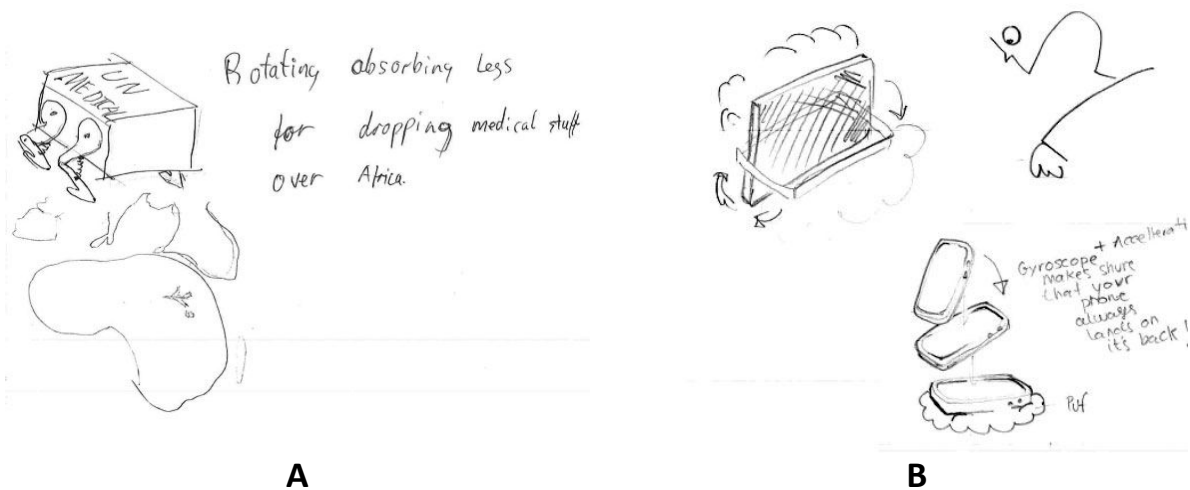 UN
MEDICAL
Rotating absorbing Legs
for dropping medical stuff
over Africa.
Gyroscope + Accellerati
makes shure
that your
phone
always
Lands on
it's back !
Puf
A
B